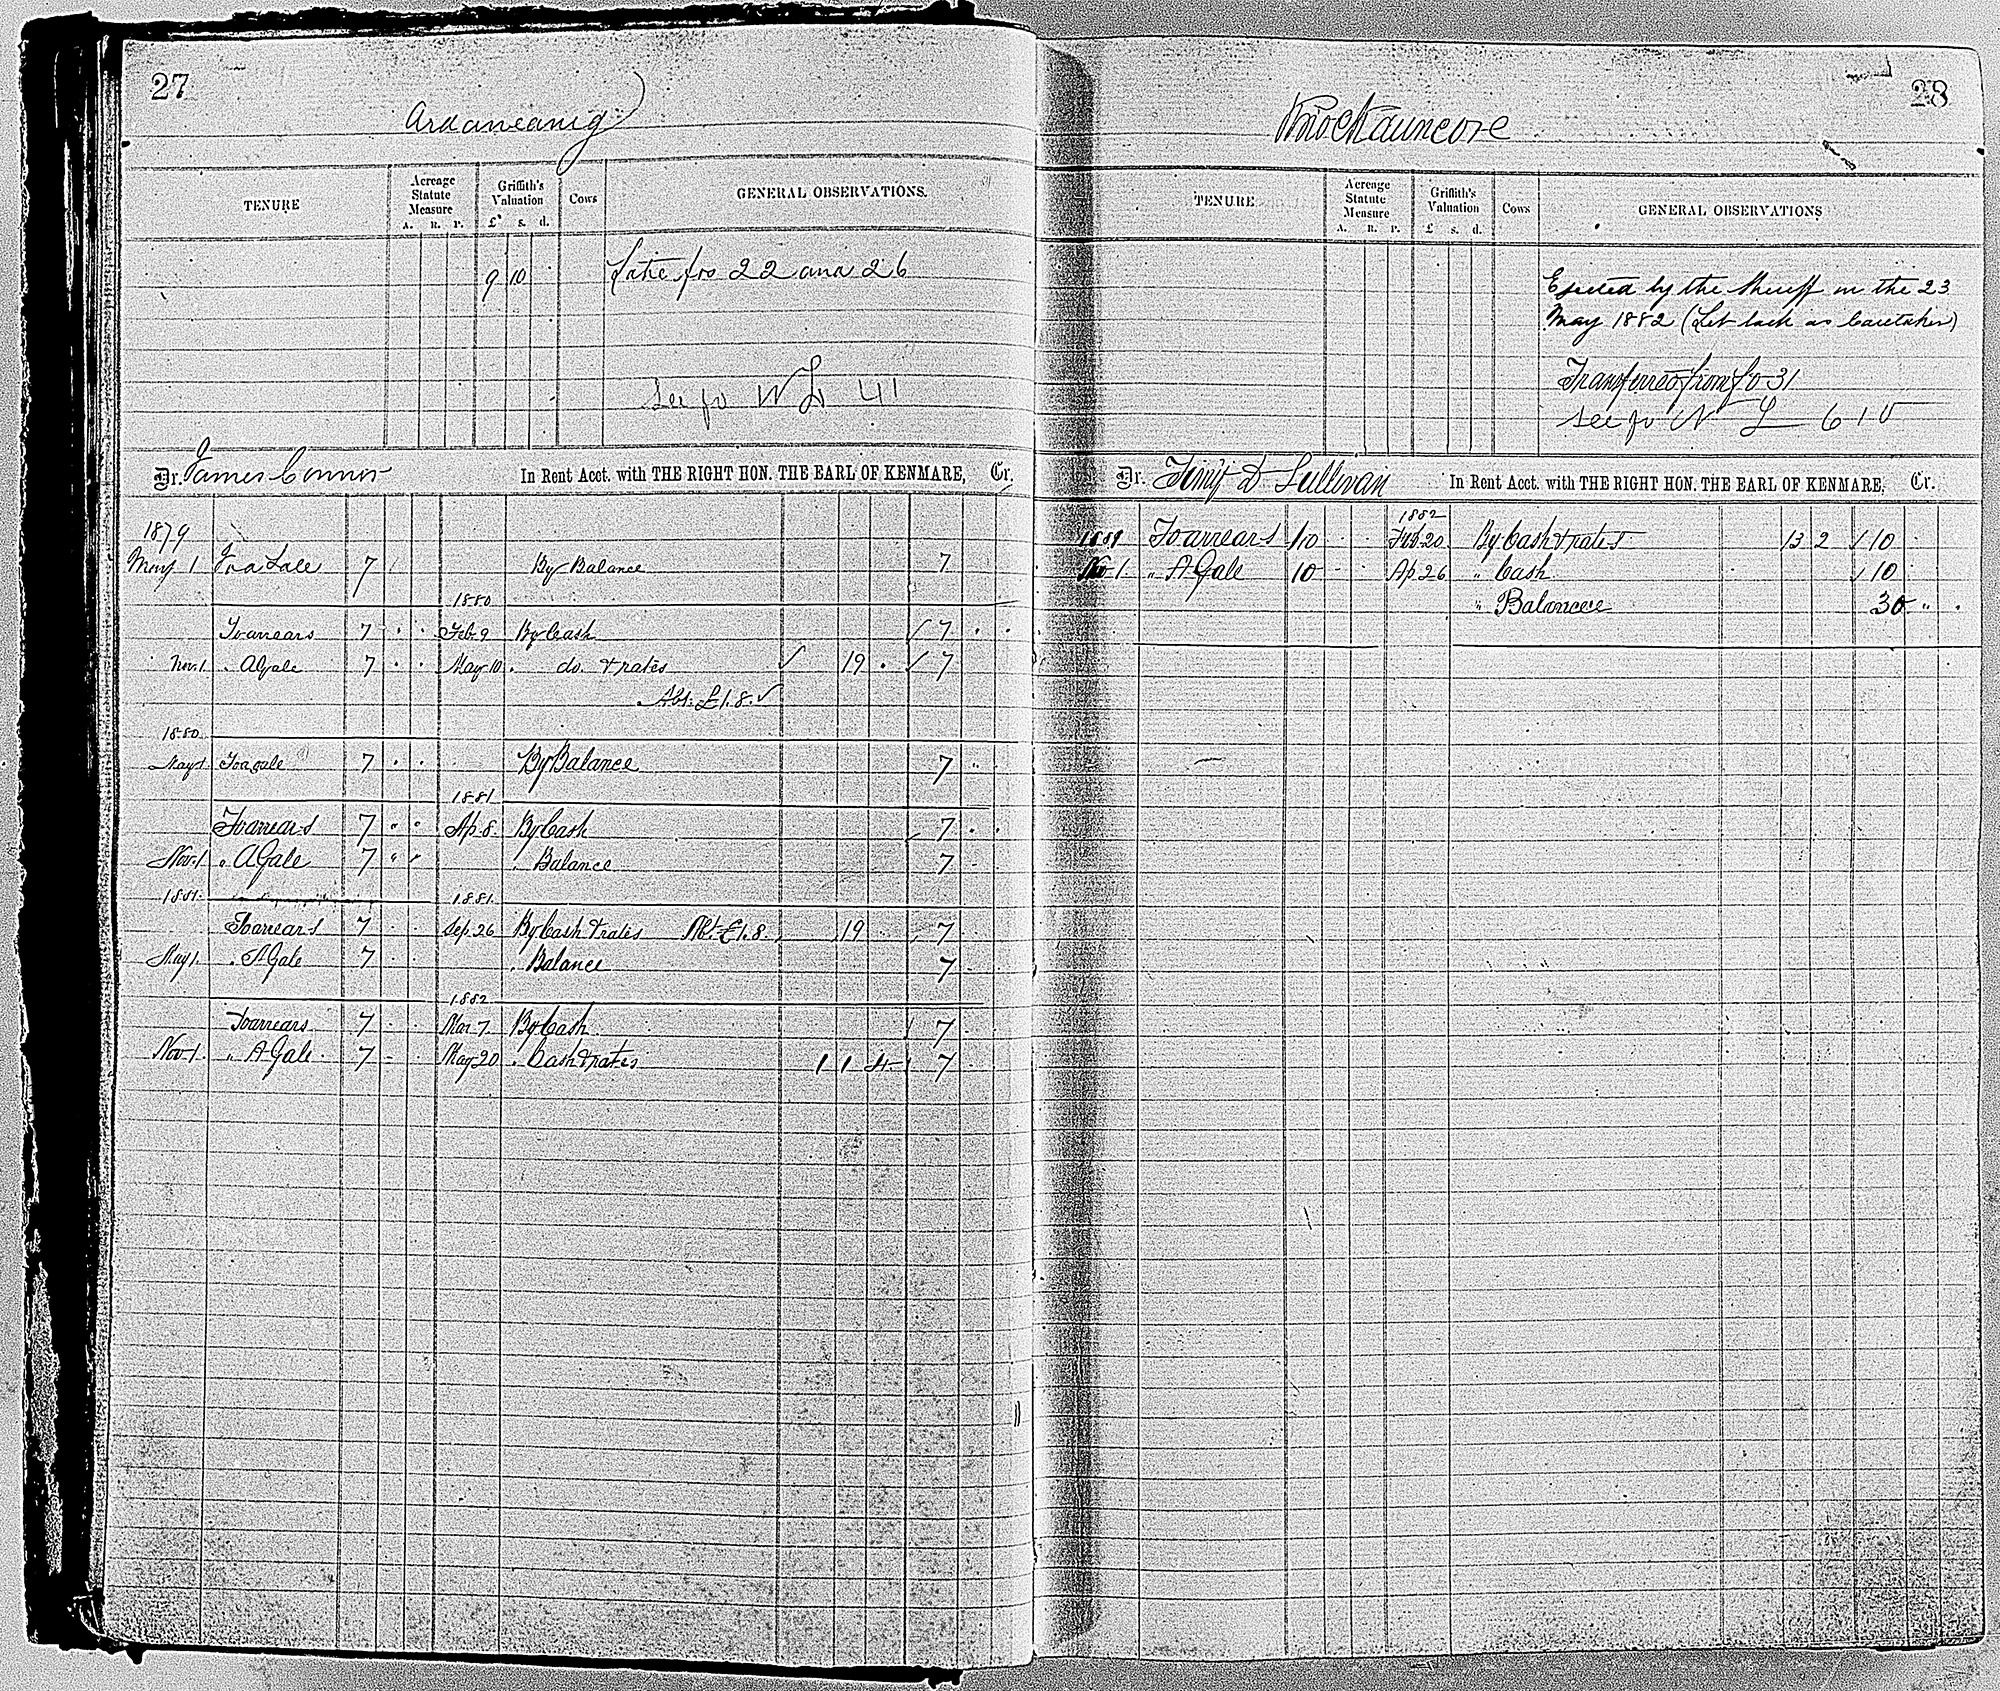 27
Ardaneanig
TENURE
Acreage Statute Measure
A. R. P.
Griffith's Valuation
£ s. d.
Cows
GENERAL OBSERVATIONS.
9 10
fos 22 and 26
See fo N L 41
Dr. James Connor In Rent Acct. with THE RIGHT HON. THE EARL OF KENMARE, Cr.
1879
May 1 To a Gale 7 By Balance 7
1880
To arrears 7 " " Feb 9 By Cash ✓ 7 " "
Nov. 1 " A Gale 7 " " May 10 " do. & rates ✓ 19 " ✓ 7
Abt. £1.8. ✓
1880
May 1 To a gale 7 " " By Balance 7 "
1881
To arrears 7 " " Ap. 8 By Cash 7 " "
Nov. 1 " A Gale 7 " " " Balance 7
1881 1881
To arrears 7 Sep. 26 By Cash & rates Abt. £1.8. 19 7
May 1. " A Gale 7 " Balance 7
1882
To arrears 7 Mar. 7 By Cash 7
Nov. 1. " A Gale 7 May 20 " Cash & rates 1 1 4 7
28
Knockauncore
TENURE
Acreage Statute Measure
A. R. P.
Griffith's Valuation
£ s. d.
Cows
GENERAL OBSERVATIONS
Ejected by the Sheriff on the 23
May 1882 (Let back as Caretaker)
Transferred from fo 31
See fo N L 610
Dr. Timy D. Sullivan In Rent Acct. with THE RIGHT HON. THE EARL OF KENMARE, Cr.
1882
To arrears 40 Feb. 20 By Cash & rates 13 2 ✓ 10
Nov 1. " A Gale 10 Ap 26 " Cash ✓ 10
" Balance 30 "